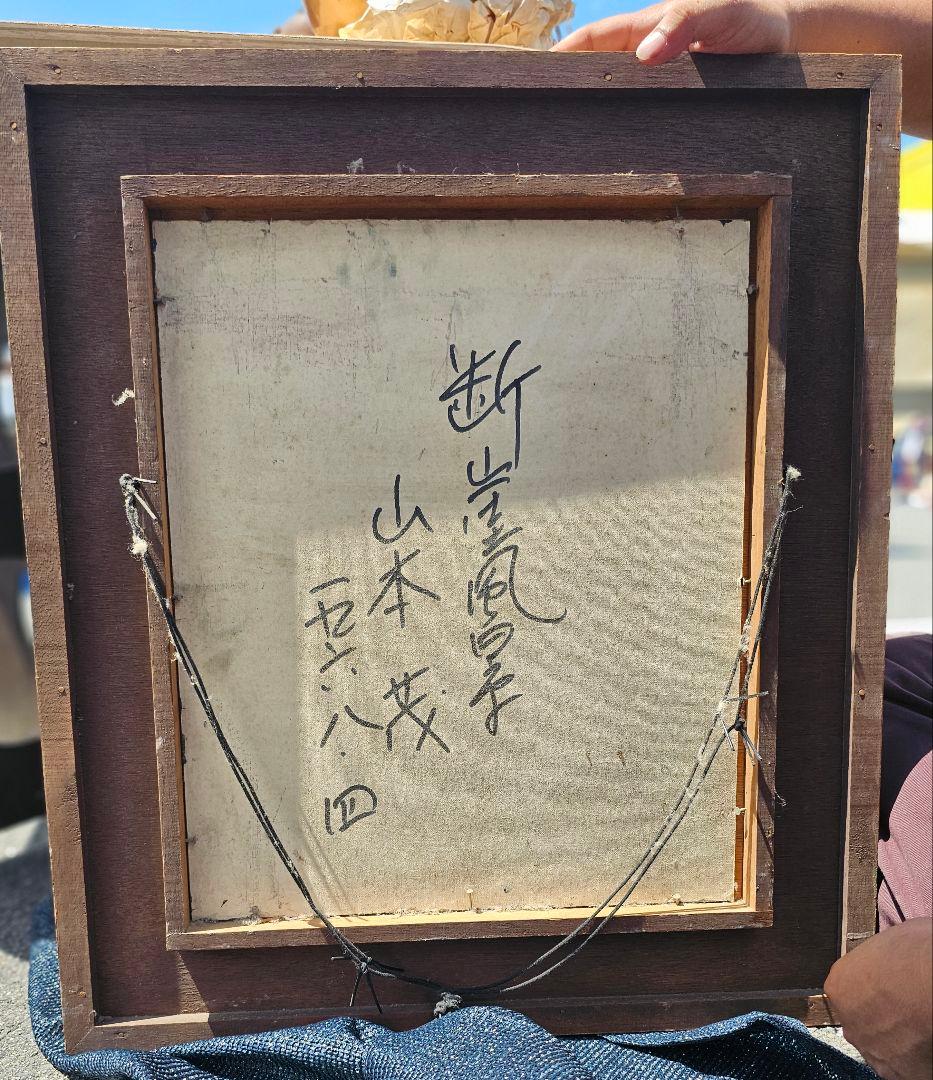 断崖風景
山本 茂
一九六八.四